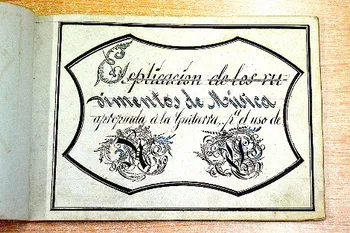 Esplicacion de los ru-
dimentos de Música
apropiada á la Guitarra, pª el uso de